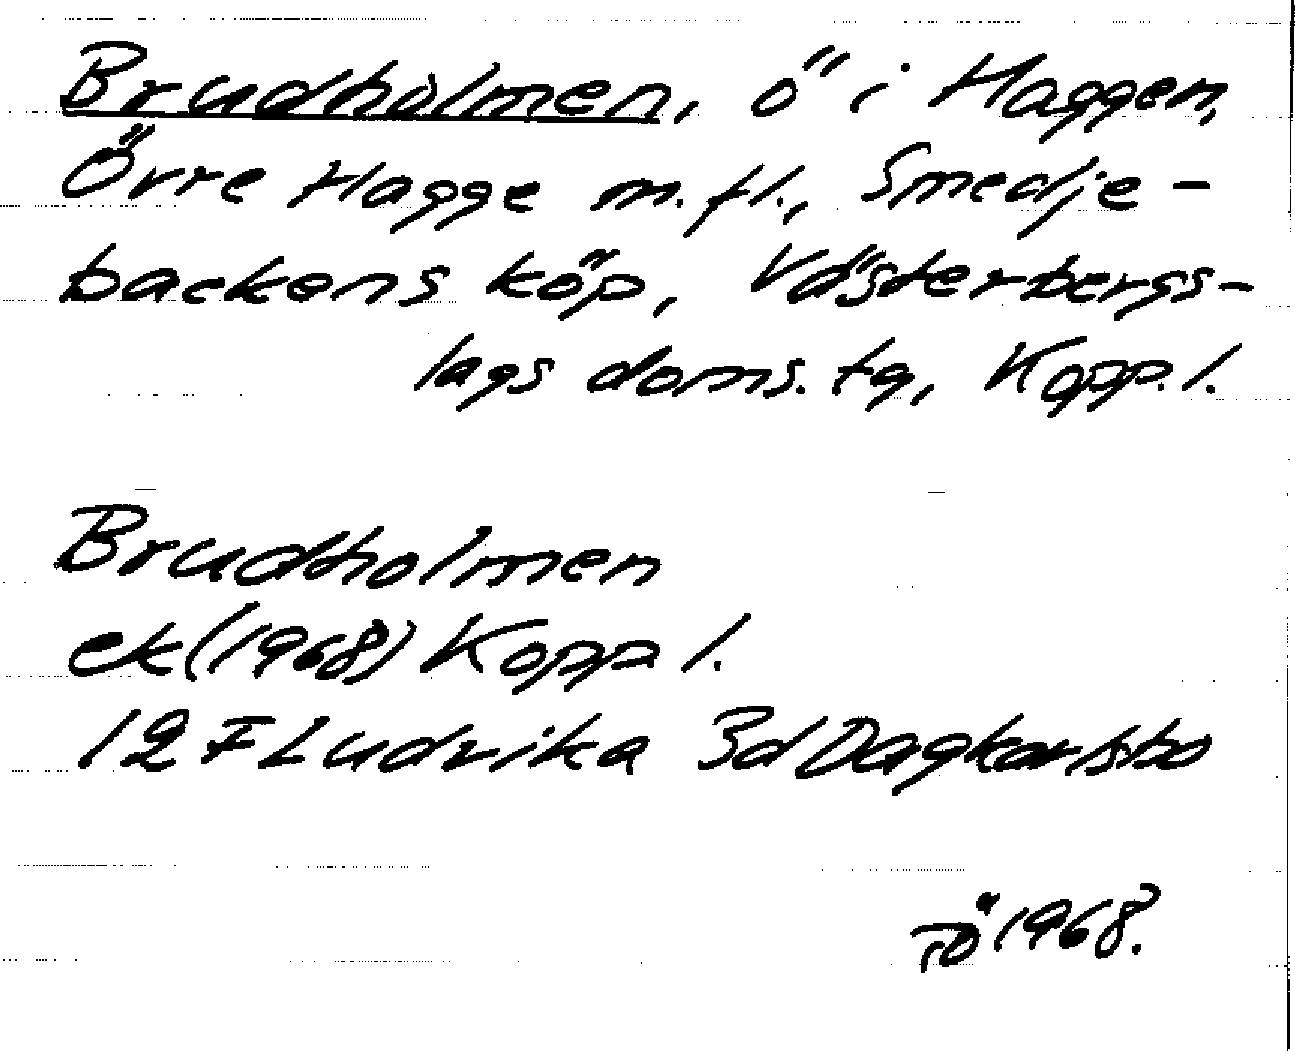 Brudholmen, ö i Haggen,
Övre Hagge m.fl., Smedje-
backens köp, Västerbergs-
lags doms. tg, Kopp. l.
Brudholmen
ek (1968) Kopp l.
12 F Ludvika 3d Dagkarlsbo
TÖ 1968.